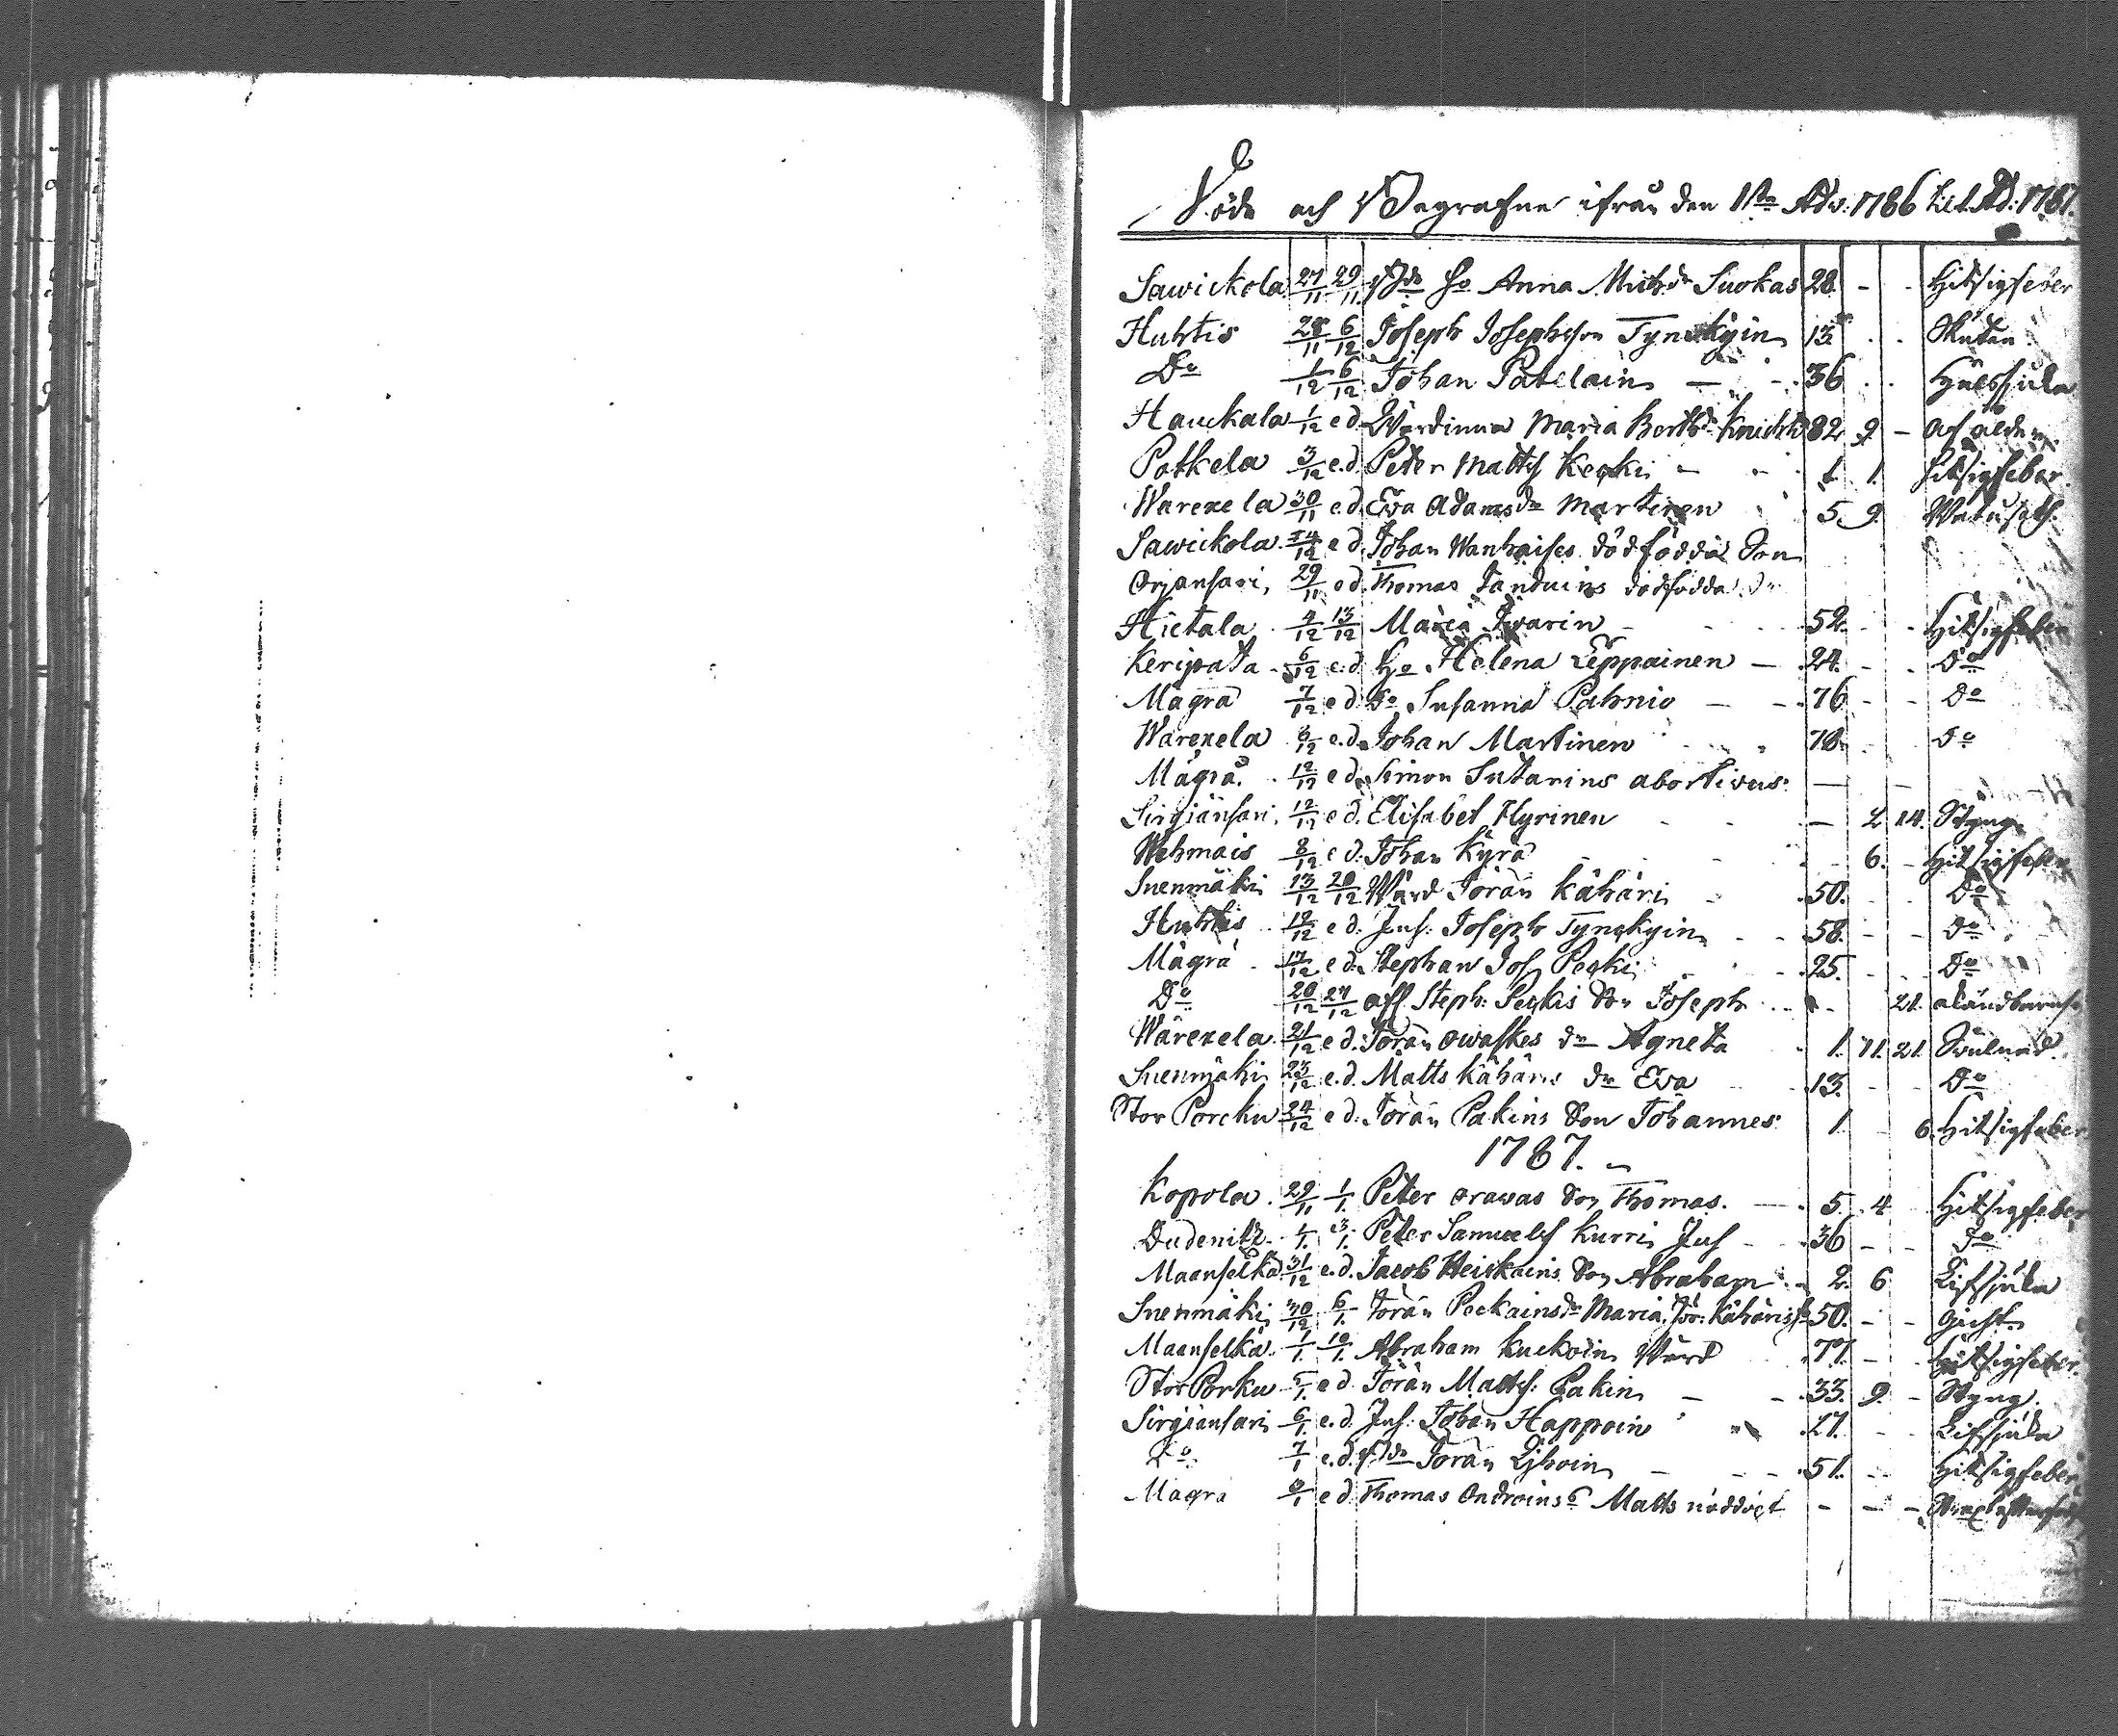 Döde och Begrafne ifrån den 1sta Adv: 1786 til Ad: 1787.
Sawickola 27/11 29/11 Bde Ho Anna Michdr Suokas 28. - - Hitsigfeber
Huhtis 28/11 6/12 Joseph Josephsson Tynskyin 13.
Do 1/12 6/12 Johan Patelain - - 36 Halssiuka
Hauckala 1/12 e d. Wärdinna Maria Bertsdr 82 9 - af ålder
Potkela 3/12 e.d. Peter Matts Kecki - - 1. 1. hitsigfeber.
Warexela 30/11 e.d. Eva Adamsdr Martinen 5. 9.
Sawickola 12 e d. Johan Wanhaises dödfödda Son
Orjansari, 29/11 e d. Thomas Tanduins dödfödda Dr
Hietala 4/12 13/12 Maria Iwarin - 52. Hitsigfeber
Keripata 6/12 e.d. Ho Helena Leppainen - 24. - - Do
Mägrä 7/12 e d. Do Susanna Pahnio - - 76 - - Do
Warexela 8/12 e.d. Johan Martinen 78. Do
Mägrä. 12/12 e d. Simon Sutarins abortivus. - -
Sirgiänsari. 12/12 e d. Elisabet Hyrinen - 2 14. Styng.
Wehmais 8/12 e d. Johan Kyrä 6. - Hitsigfeber
Suenmäki 13/12 20/12 Wärd Jöran Kähäri 50. Do
Huhtis 12 e d. Inh: Joseph Tynskyin 58. - - Do
Mägrä 17/12 e d. Stephan Jos Pecki 25. Do
Do 20/12 27/12 afl. Steph: Peckis Son Joseph 21.
Wärexela 21/12 e d. Jöran Owaskes dr Agneta 1. 11. 21. Svulnad.
Suenmäki 23/12 e.d. Matts Kähäris dr Eva 13. Do
Stor Porcku 24/12 e d. Jöran Pakins Son Johannes 1. 6. Hitsigfeber
1787.
Kopola 29/11 1/1. Peter Orawas Son Thomas. - 5. 4 Hitsigfeber
Dudenitz 1/1. 3/1. Peter Samuels Kurri Inh - 36 - - Do
Maanselkä 31/12 e.d. Jacob Heiskains Son Abraham 2. 6 Lifsjuka
Suenmäki 30/12 6/1. Jöran Peckains dr Maria, Jör: Kähäris 50. - - Gicht
Maanselkä. 1/1. 10/1. Abraham Kuckoin Wärd 77. - - Hitsigfeber.
Stor Porku 5/1. e d. Jöran Matts: Pakin - - 33. 9. - Styng.
Sirgiänsari 6/1. e.d. Inh: Johan Happoin 27. - - Lifsjuka
Do 7/1 e.d. Bde Jöran Ljhoin - - 51. - - Hitsigfeber
Mägrä 1 e d. Thomas Androins S Matts nöddöpt - - -